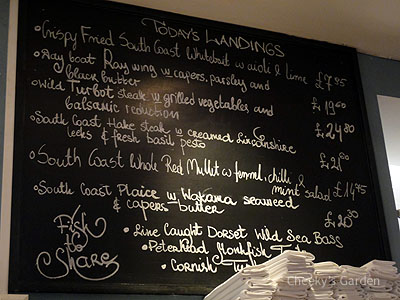 TODAY'S LANDINGS
• Crispy Fried South Coast Whitebait w aioli & lime £7.95
• Day boat Ray wing w capers, parsley and
black butter £19.00
• Wild Turbot steak w grilled vegetables and
balsamic reduction £24.80
• South Coast Hake steak w creamed Lincolnshire
leeks & fresh basil pesto £21.00
• South Coast Whole Red Mullet w fennel, chilli &
mint salad £14.75
• South Coast Plaice w Wakame seaweed
& capers butter £20.50
Fish
to
Share
• Line Caught Dorset Wild Sea Bass
• Peterhead Monkfish
• Cornish
Cheeky's Garden